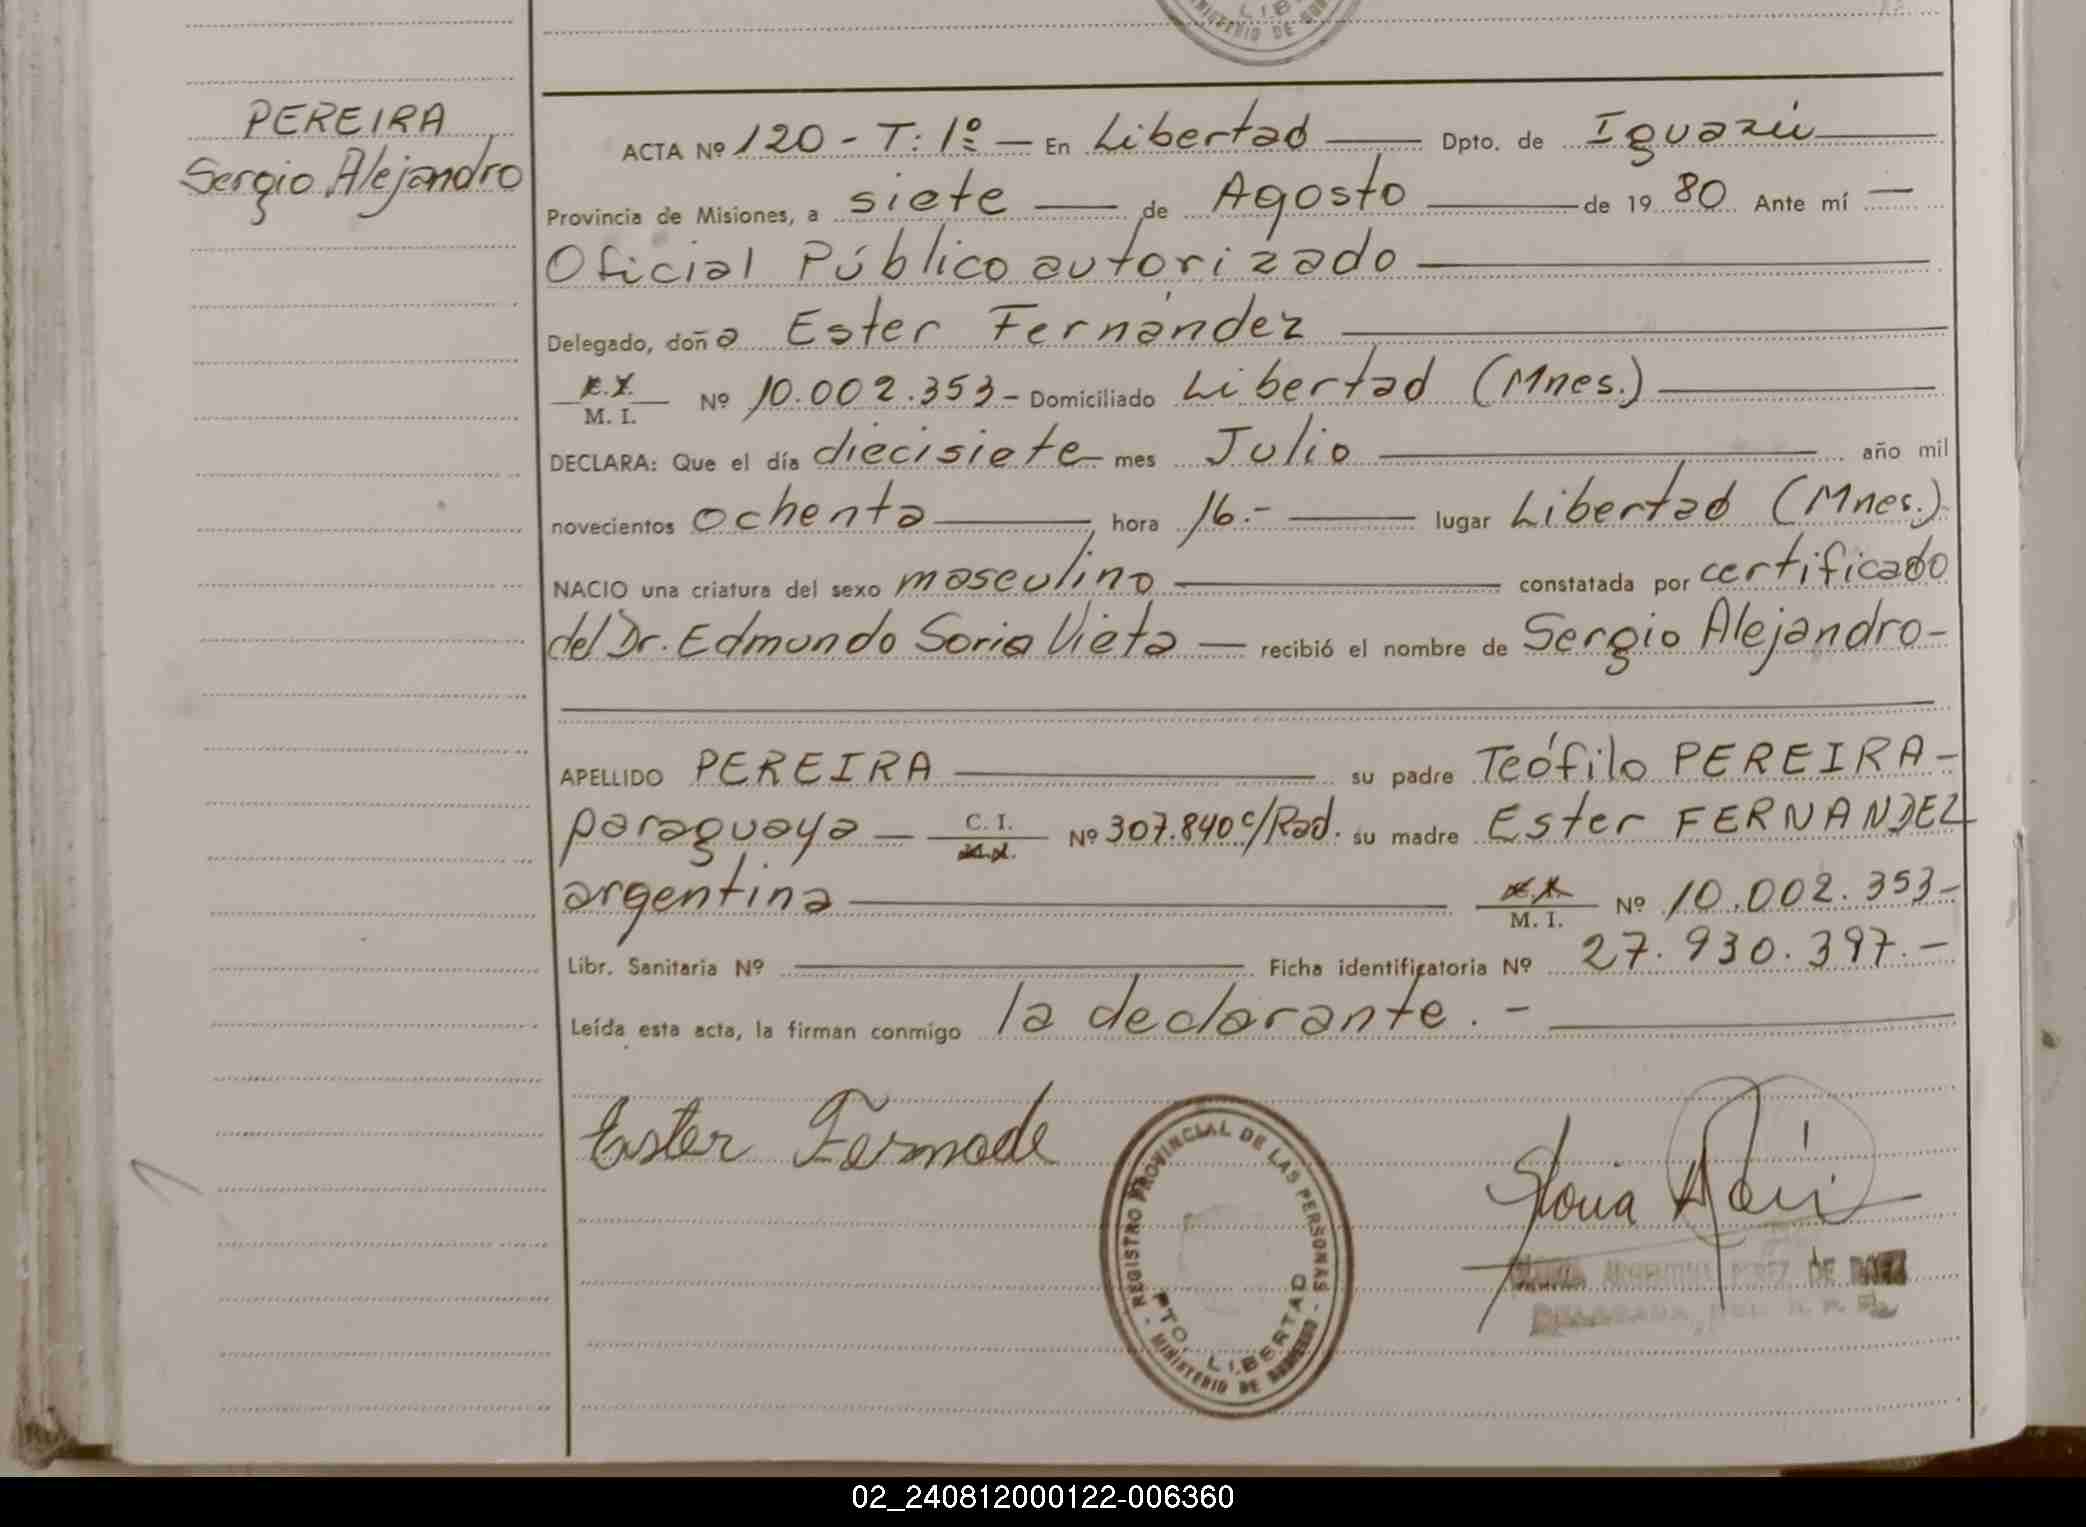 LIB
MINISTERIO DE
PEREIRA
Sergio Alejandro
ACTA Nº 120 - T: 1º — En Libertad — Dpto. de Iguazú
Provincia de Misiones, a siete — de Agosto — de 1980 Ante mí —
Oficial Público autorizado —
Delegado, doña Ester Fernández —
M. I. Nº 10.002.353 - Domiciliado Libertad (Mnes.) —
DECLARA: Que el día diecisiete - mes Julio — año mil
novecientos ochenta — hora 16.- — lugar Libertad (Mnes.)
NACIO una criatura del sexo masculino — constatada por certificado
del Dr. Edmundo Soria Vieta — recibió el nombre de Sergio Alejandro -
APELLIDO PEREIRA — su padre Teófilo PEREIRA -
paraguaya — C. I. Nº 307.840 c/Rad. su madre Ester FERNANDEZ
argentina — M. I. Nº 10.002.353 -
Libr. Sanitaria Nº — Ficha identificatoria Nº 27.930.397.-
Leída esta acta, la firman conmigo la declarante. -
Ester
REGISTRO PROVINCIAL DE LAS PERSONAS
PTO. LIBERTAD
- MINISTERIO DE GOBIERNO -
ARGENTINA PEREZ DE
02_240812000122-006360